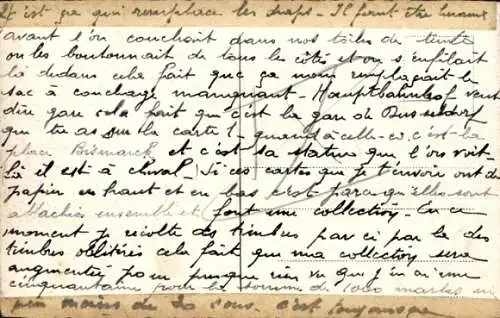 c'est ça qui remplace les draps - Il faut être
avant l'on couchait dans nos toiles de tente
on les boutonnait de tous les côtés et on s'enfilait
là dedans cela fait que ça nous remplaçait le
sac à couchage manquant - Hauptbahnhof veut
dire gare cela fait que c'est la gare de Dusseldorf
que tu as sur la carte 1 - quand à celle-ci c'est la
place Bismarck et c'est sa statue que l'on voit
là il est à cheval - Si ces cartes que je t'envoie ont du
papier en haut et en bas c'est parce qu'elles sont
attachées ensemble et font une collection. En ce
moment je récolte des timbres par ci par là des
timbres oblitérés cela fait que ma collection sera
augmentée pour presque rien vu que j'en ai une
cinquantaine pour la somme de 1000 marks
peu moins de 20 sous. c'est toujours